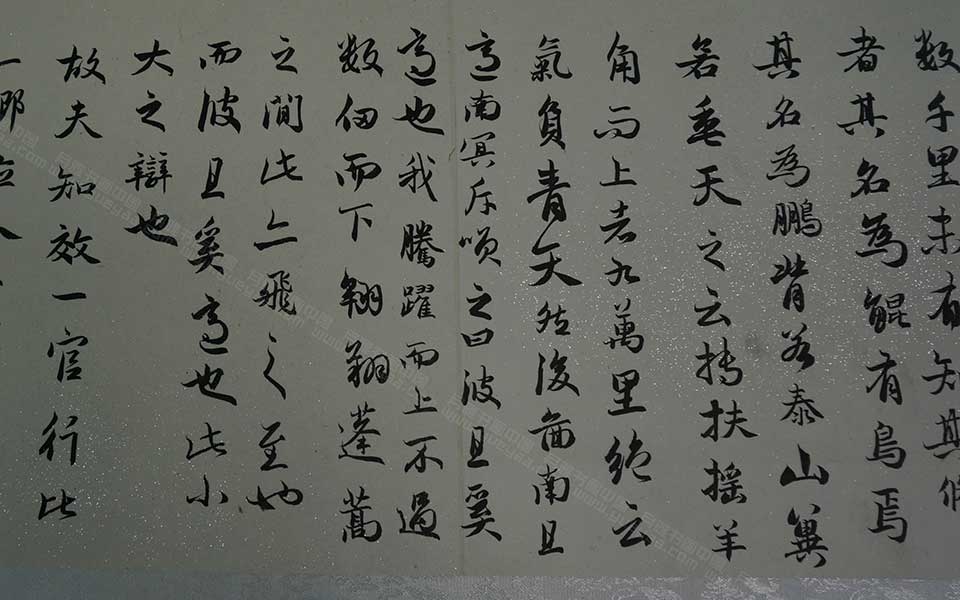 数千里未有知其修
者其名為鯤有鳥焉
其名為鵬背若泰山翼
若垂天之云摶扶摇羊
角而上者九萬里绝云
氣負青天然後圖南且
適南冥斥之曰彼且奚
適也我騰躍而上不過
数仞而下翱翔蓬蒿
之間此亦飛之至也
而彼且奚適也此小
大之辯也
故夫知效一官行比